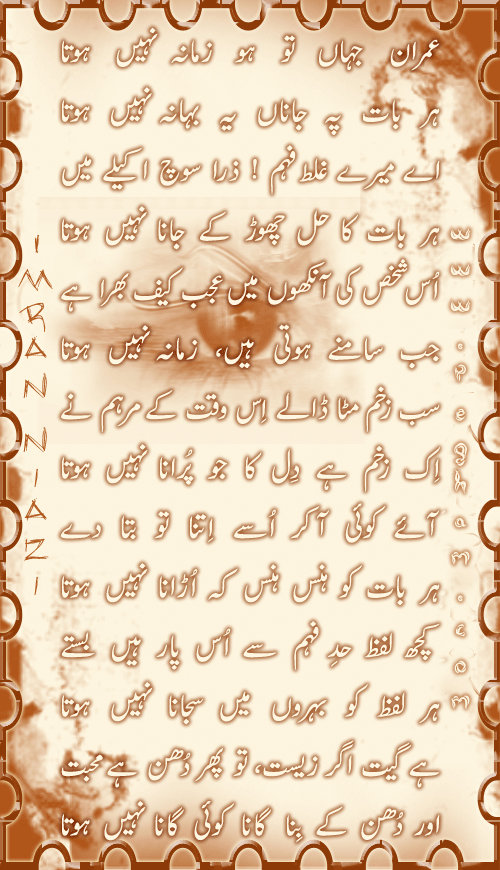 عمران جہاں تو ہو زمانہ نہیں ہوتا
ہر بات پہ جاناں یہ بہانہ نہیں ہوتا
اے میرے غلط فہم ! ذرا سوچ اکیلے میں
ہر بات کا حل چھوڑ کے جانا نہیں ہوتا
اُس شخص کی آنکھوں میں عجب کیف بھرا ہے
جب سامنے ہوتی ہیں، زمانہ نہیں ہوتا
سب زخم مٹا ڈالے اِس وقت کے مرہم نے
اِک زخم ہے دِل کا جو پُرانا نہیں ہوتا
آئے کوئی آ کر اُسے اِتنا تو بتا دے
ہر بات کو ہنس ہنس کہ اُڑانا نہیں ہوتا
کچھ لفظ حدِ فہم سے اُس پار ہیں بستے
ہر لفظ کو بہروں میں سجانا نہیں ہوتا
ہے گیت اگر زیست، تو پھر دُھن ہے محبت
اور دُھن کے بِنا گانا کوئی گانا نہیں ہوتا
IMRAN NIAZI